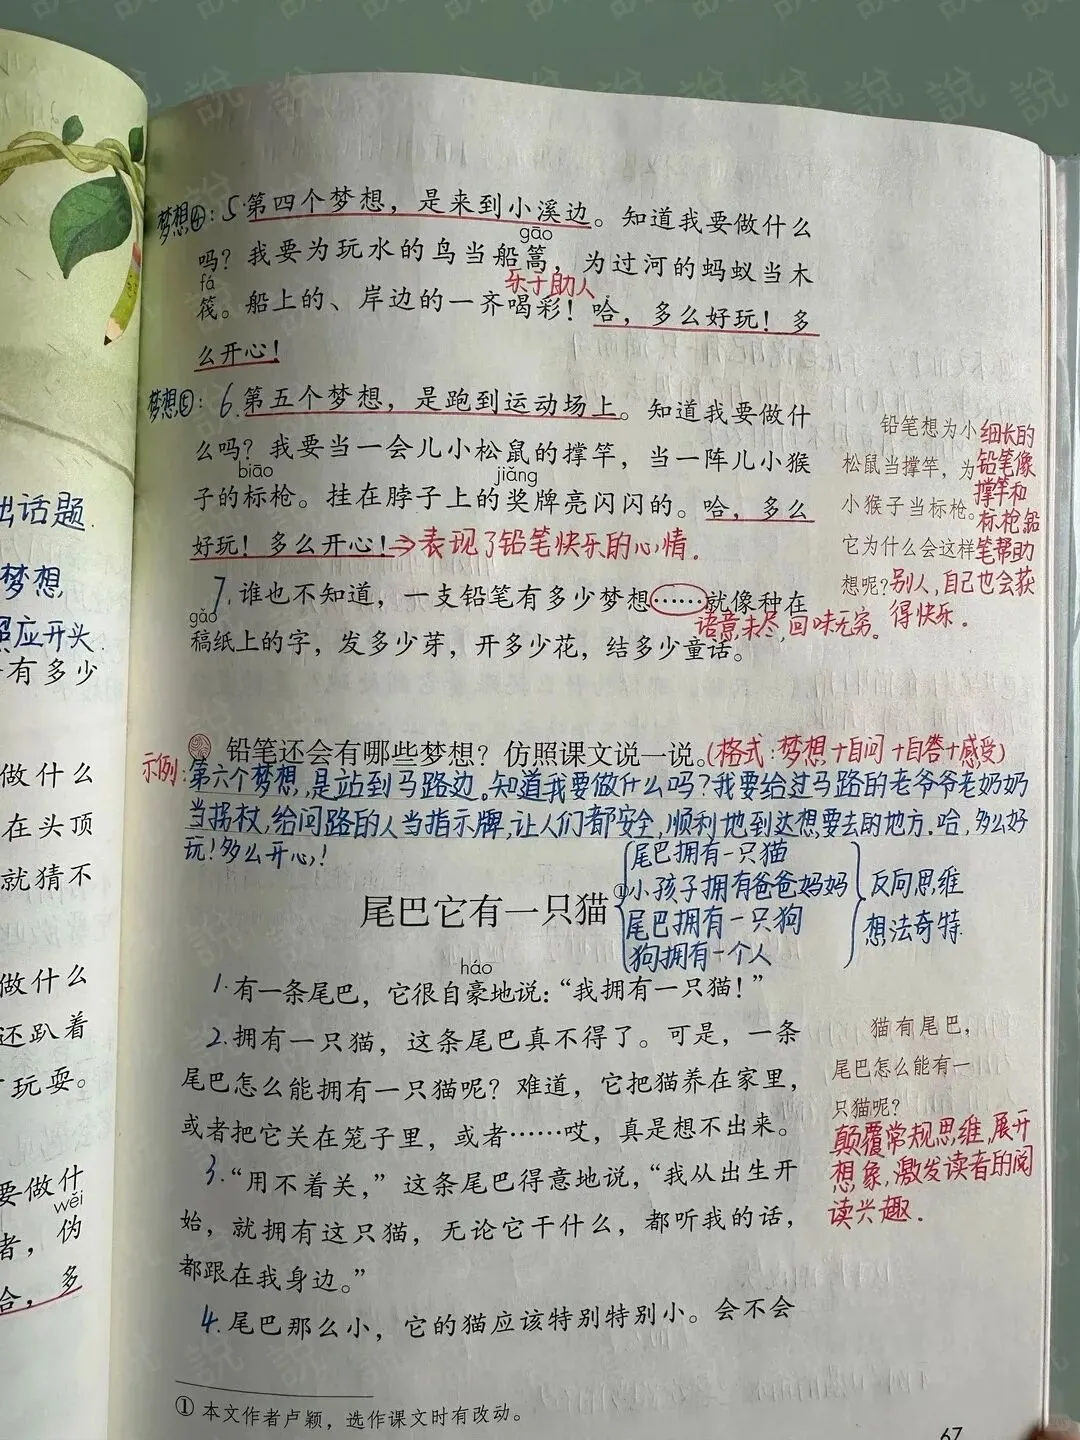 出话题.
梦想
照应开头.
有多少
做什么
在头顶
就猜不
做什么
还趴着
玩耍。
要做什
wěi
者，伪
哈，多
梦想④：5.第四个梦想，是来到小溪边。知道我要做什么
gāo
吗？我要为玩水的鸟当船篙，为过河的蚂蚁当木
fá
乐于助人
筏。船上的、岸边的一齐喝彩！哈，多么好玩！多
么开心！
梦想⑤：6.第五个梦想，是跑到运动场上。知道我要做什
么吗？我要当一会儿小松鼠的撑竿，当一阵儿小猴
biāo jiǎng
子的标枪。挂在脖子上的奖牌亮闪闪的。哈，多么
好玩！多么开心！→表现了铅笔快乐的心情.
7.谁也不知道，一支铅笔有多少梦想……就像种在
gǎo
语意未尽,回味无穷。
稿纸上的字，发多少芽，开多少花，结多少童话。
铅笔想为小
松鼠当撑竿，为
小猴子当标枪。
它为什么会这样
想呢？
细长的
铅笔像
撑竿和
标枪,铅
笔帮助
别人,自己也会获
得快乐.
铅笔还会有哪些梦想？仿照课文说一说。(格式:梦想+自问+自答+感受)
示例:第六个梦想,是站到马路边。知道我要做什么吗？我要给过马路的老爷爷老奶奶
当拐杖,给问路的人当指示牌,让人们都安全,顺利地到达想要去的地方.哈,多么好
玩！多么开心！
尾巴它有一只猫①
尾巴拥有一只猫
小孩子拥有爸爸妈妈
尾巴拥有一只狗
狗拥有一个人
反向思维
想法奇特.
háo
1.有一条尾巴，它很自豪地说：“我拥有一只猫！”
2.拥有一只猫，这条尾巴真不得了。可是，一条
尾巴怎么能拥有一只猫呢？难道，它把猫养在家里，
或者把它关在笼子里，或者……哎，真是想不出来。
3.“用不着关，”这条尾巴得意地说，“我从出生开
始，就拥有这只猫，无论它干什么，都听我的话，
都跟在我身边。”
4.尾巴那么小，它的猫应该特别特别小。会不会
猫有尾巴，
尾巴怎么能有一
只猫呢？
颠覆常规思维,展开
想象,激发读者的阅
读兴趣.
① 本文作者卢颖，选作课文时有改动。
67